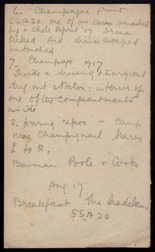 6. Champagne front
SSA 20 one of our cars smashed
by a shell April '17 Driver
killed Aid driver escaped
untouched
7. Champagne 1917
Inside a dressing & surgical
dug-out station: interior of
one of the compartments
inside
8. repos - camp
near Champigneul Marne
L to R.
Burman Poole & Cooks
Aug 17
Breakfast
SSA 20